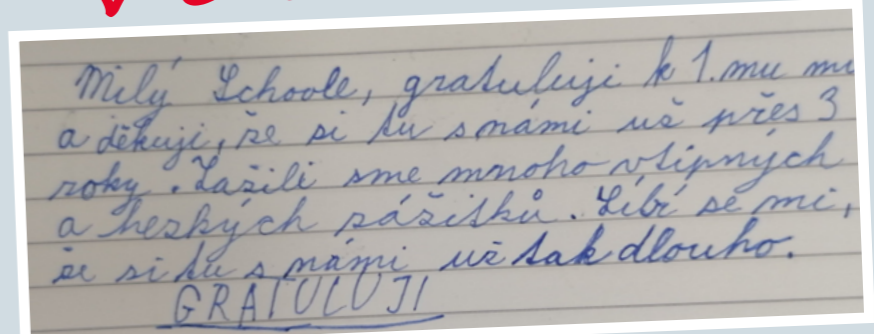 Milý Schoole, gratuluji k 1.mu
a děkuji, že si tu snámi už přes 3
roky. Zažili sme mnoho vtipných
a hezkých zážitků. Líbí se mi,
že si tu s námi už tak dlouho.
GRATULUJI